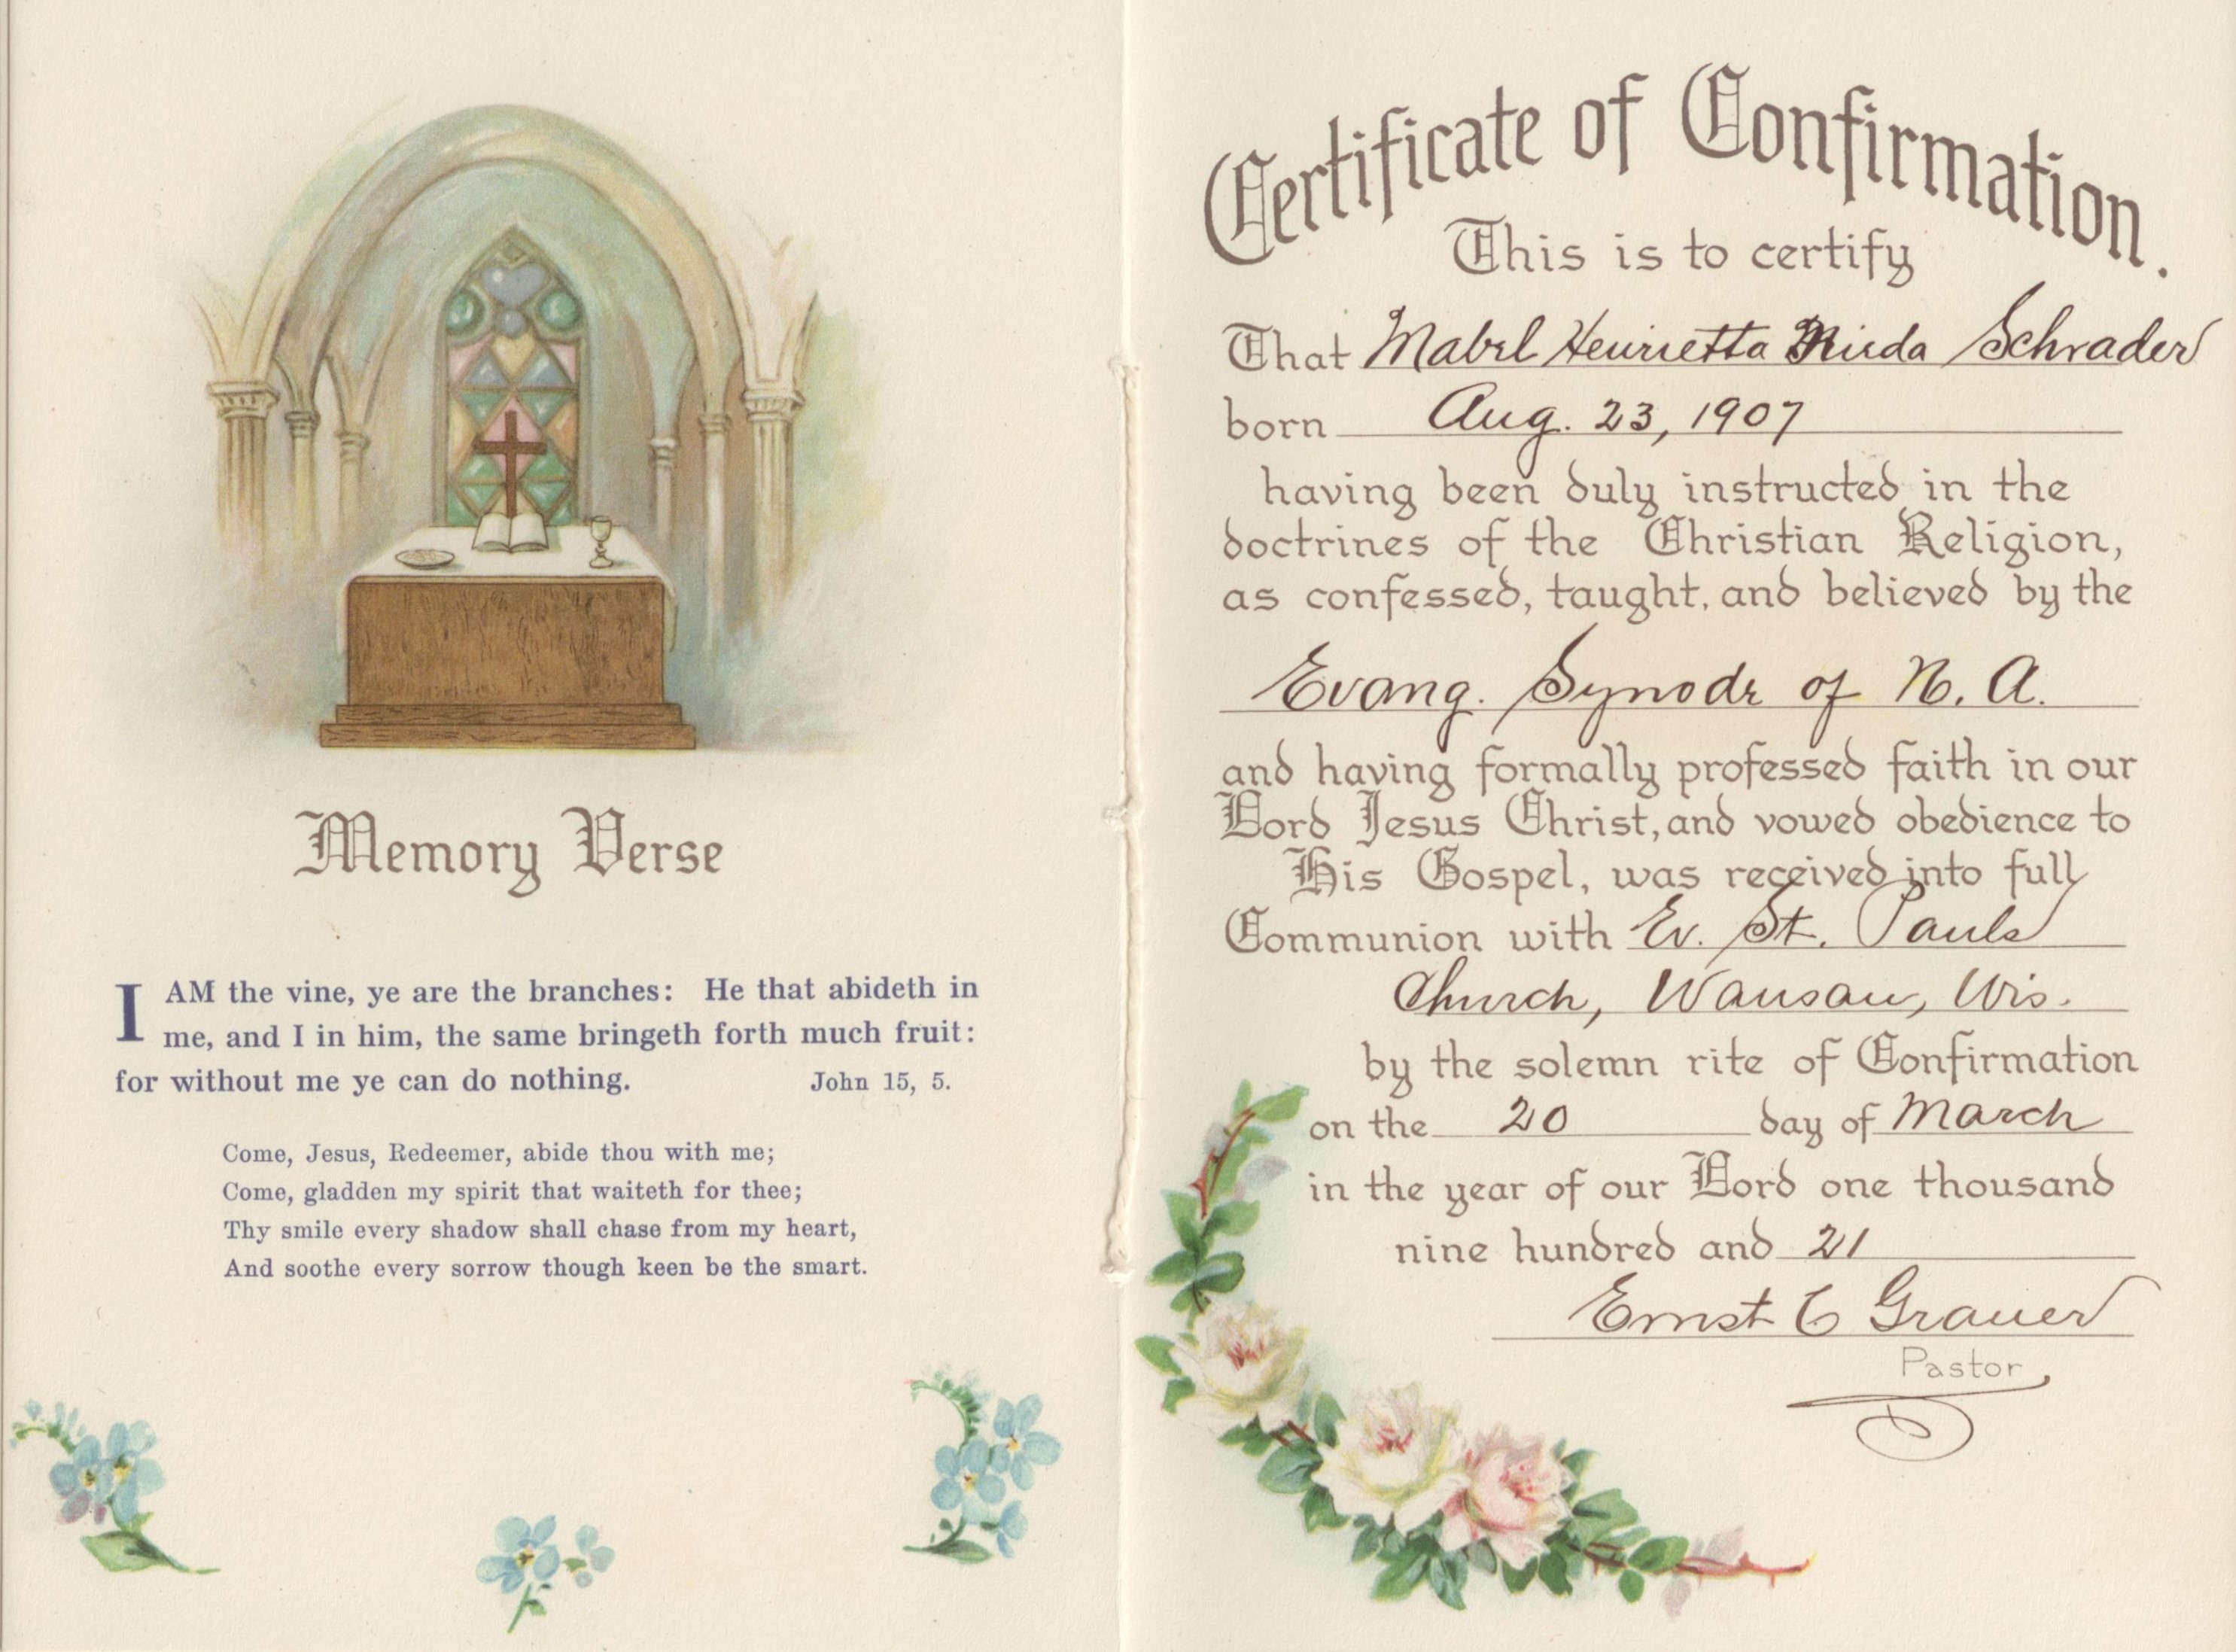 Memory Verse
I AM the vine, ye are the branches: He that abideth in
me, and I in him, the same bringeth forth much fruit:
for without me ye can do nothing. John 15, 5.
Come, Jesus, Redeemer, abide thou with me;
Come, gladden my spirit that waiteth for thee;
Thy smile every shadow shall chase from my heart,
And soothe every sorrow though keen be the smart.
Certificate of Confirmation.
This is to certify
That Mabel Henrietta Schrader
born Aug. 23, 1907
having been duly instructed in the
doctrines of the Christian Religion,
as confessed, taught, and believed by the
Evang. Synode of N. A.
and having formally professed faith in our
Lord Jesus Christ, and vowed obedience to
His Gospel, was received into full
Communion with Ev. St. Pauls
Church, Wausau, Wis.
by the solemn rite of Confirmation
on the 20 day of March
in the year of our Lord one thousand
nine hundred and 21
Ernst C Grauer
Pastor